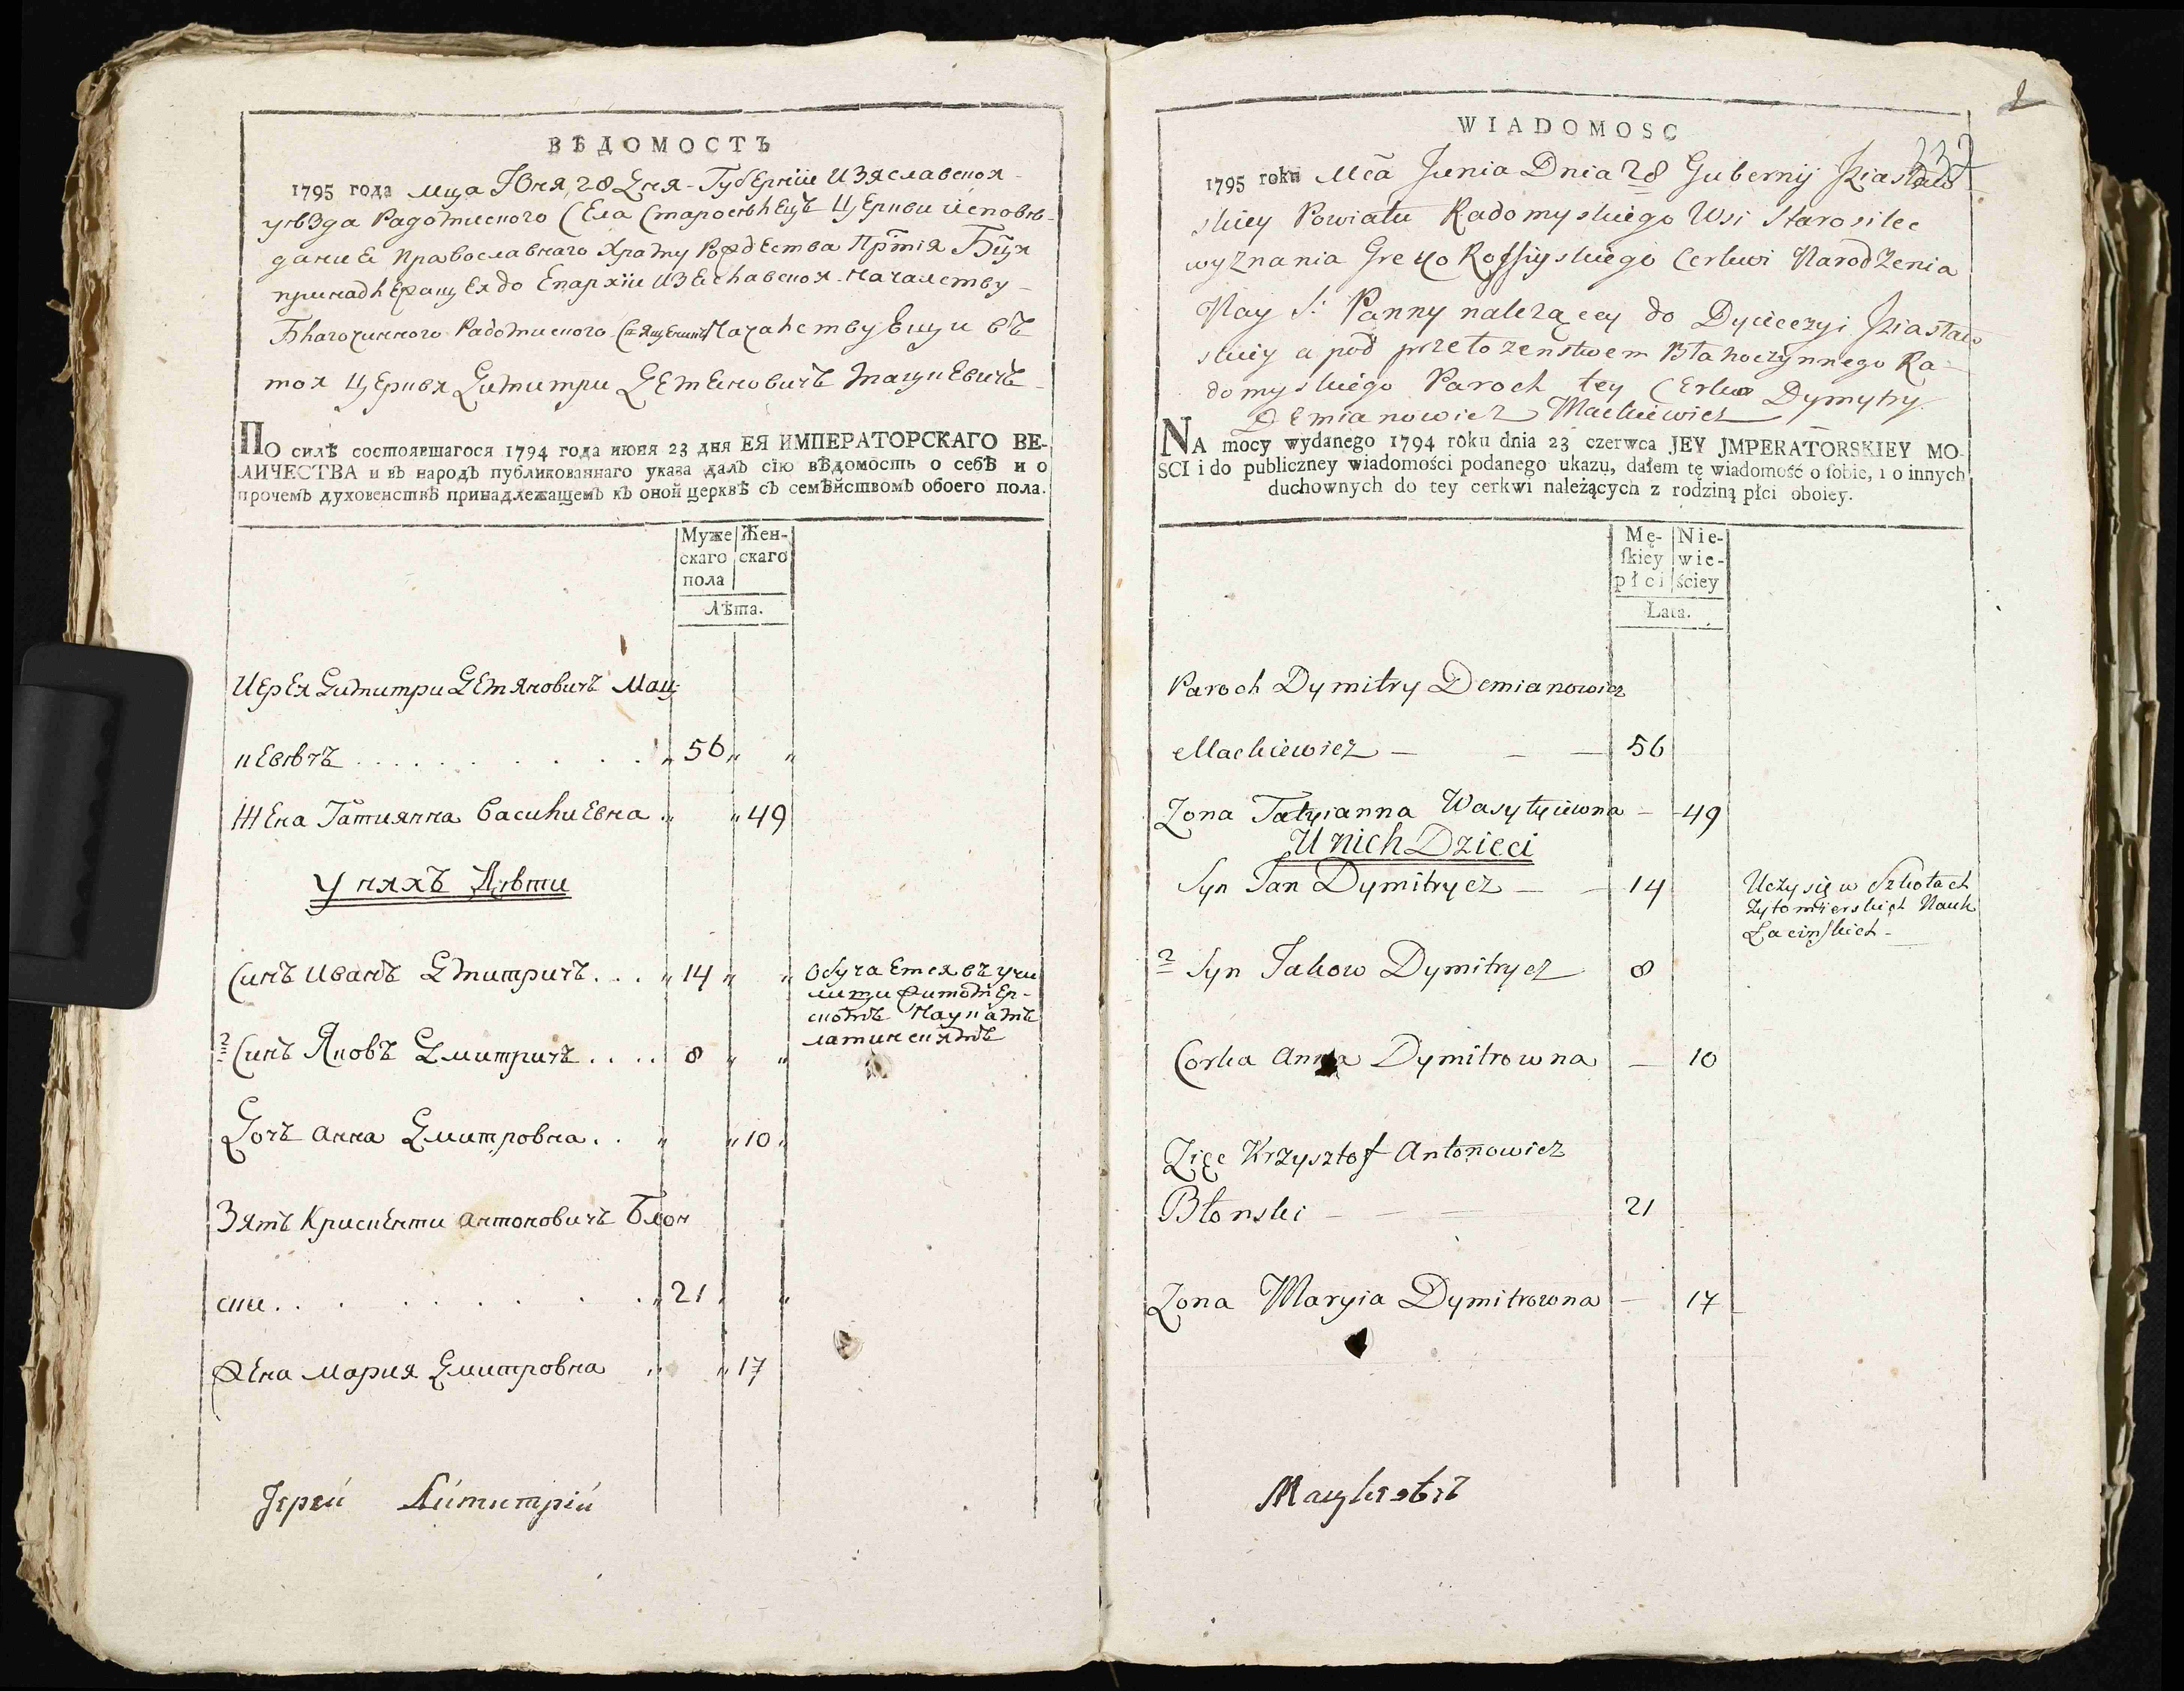 ВѢДОМОСТЪ
1795 года мца Юня 28 Дня Губернiи Изяславской
уѣзда Радомиского Села Старосѣлецъ Церкви исповѣ-
дание Православнаго Храму Рождества Прстiя Бцы
принадлежащея до Епархiи Изеславской Началству
Благочинного Радомиского Началствующи въ
тоя церквя Димитри Демяновичъ Мацкевичъ
По силѣ состоявшагося 1794 года июня 23 дня ЕЯ ИМПЕРАТОРСКАГО ВЕ-
ЛИЧЕСТВА и въ народъ публикованнаго указа далъ сiю вѣдомость о себѣ и о
прочемъ духовенствѣ принадлежащемъ къ оной церквѣ съ семѣйствомъ обоего пола.
Муже Жен-
скаго скаго
пола
Лѣта.
Иерея Димитри Демяновичъ Мац-
кевѣчъ . . . . . . . . . „ 56 „ „
Жена Татиянна Василиевна . „ „ 49
У няхъ Дѣти
Синъ Иванъ Дмитричъ . . . „ 14 „ „ Обучается въ учи
лищи Житомер-
скомъ Наукамъ
латинскямъ
2 Синъ Яковъ Дмитричъ . . . . 8 „ „
Дочъ Анна Дмитровна . . „ „ 10 „
Зятъ Крискенти Антоновичъ Блон
ски . . . . . . . . „ 21 „ „
Жена Мария Дмитровна „ „ 17
Iерей Димитрiй
WIADOMOSC
1795 roku Mca Junia Dnia 28 Gubernij Iziasław
skiey Powiatu Radomyskiego Wsi Starosilec
wyznania Greko Rossyiskiego Cerkwi Narodzenia
Nay S: Panny należącey do Dyiecezyi Iziasław
skiey a pod przełożenstwem Błahoczynnego Ra-
domyskiego Paroch tey Cerkwi Dymytry
Demianowicz Mackiewicz
NA mocy wydanego 1794 roku dnia 23 czerwca JEY JMPERATORSKIEY MO-
SCI i do publiczney wiadomości podanego ukazu, dałem tę wiadomość o sobie, i o innych
duchownych do tey cerkwi należących z rodziną płci oboiey.
Mę- Nie-
skiey wie-
płci ściey
Lata.
Paroch Dymitry Demianowicz
Mackiewicz — — — 56
Zona Tatyianna Wasyłyiewna — 49
U nich Dzieci
Syn Jan Dymitrycz — — 14 Uczy się w Szkołach
Zytomierskich Nauk
Łacinskich -
2 Syn Jakow Dymitrycz 8
Corka Anna Dymitrowna — 10
Zięc Krzysztof Antonowicz
Błonski — — — 21
Zona Maryia Dymitrowna — 17
Мацкевѣчъ